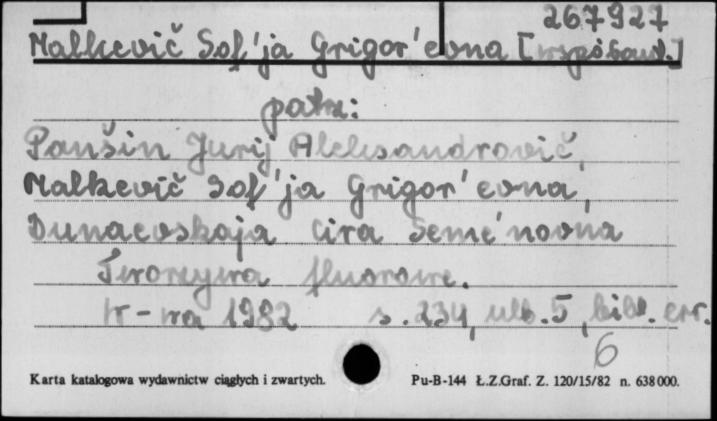 267927
Malkevič Sof'ja Grigor'evna [współaut.]
patrz:
Panšin Jurij Aleksandrovič,
Malkevič Sof'ja Grigor'evna,
Dunaevskaja Cira Semenovna
Tworzywa fluorowe.
W-wa 1982 s. 234, ulb. 5, bibl. err.
6
Karta katalogowa wydawnictw ciągłych i zwartych. Pu-B-144 Ł.Z.Graf. Z. 120/15/82 n. 638000.